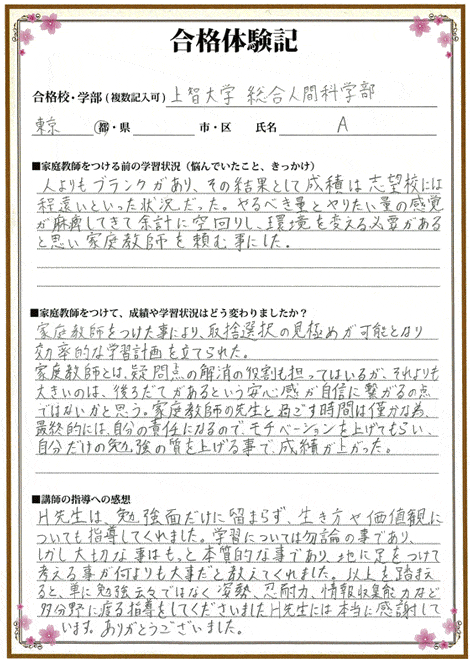 合格体験記
合格校・学部(複数記入可) 上智大学 総合人間科学部
東京 都・県 市・区 氏名 A
■家庭教師をつける前の学習状況(悩んでいたこと、きっかけ)
人よりもブランクがあり、その結果として成績は志望校には
程遠いといった状況だった。やるべき量とやりたい量の感覚
が麻痺してきて余計に空回りし、環境を変える必要がある
と思い家庭教師を頼む事にした。
■家庭教師をつけて、成績や学習状況はどう変わりましたか?
家庭教師をつけた事により、取捨選択の見極めが可能となり
効率的な学習計画を立てられた。
家庭教師とは、疑問点の解消の役割も担ってはいるが、それよりも
大きいのは、後ろだてがあるという安心感が自信に繋がるの点
ではないかと思う。家庭教師の先生と過ごす時間は僅かな為、
最終的には、自分の責任になるので、モチベーションを上げてもらい、
自分だけの勉強の質を上げる事で、成績が上がった。
■講師の指導への感想
H先生は、勉強面だけに留まらず、生き方や価値観に
ついても指導してくれました。学習については勿論の事であり、
しかし大切な事はもっと本質的な事であり、地に足をつけて
考える事が何よりも大事だと教えてくれました。以上を踏まえ
ると、単に勉強云々ではなく姿勢、忍耐力、情報収集能力など
多分野に渡る指導をしてくださいましたH先生には本当に感謝して
います。ありがとうございました。